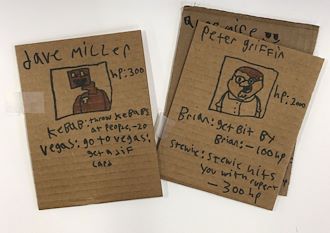 dave Miller
hp:300
KEBAB: throw KEBABS
at people, -20
Vegas: go to vegas:
get a gif
card
peter griffin
hp:2000
Brian: get Bit By
Brian: -100hp
Stewie: Stewie hits
you with rupert
-300hp